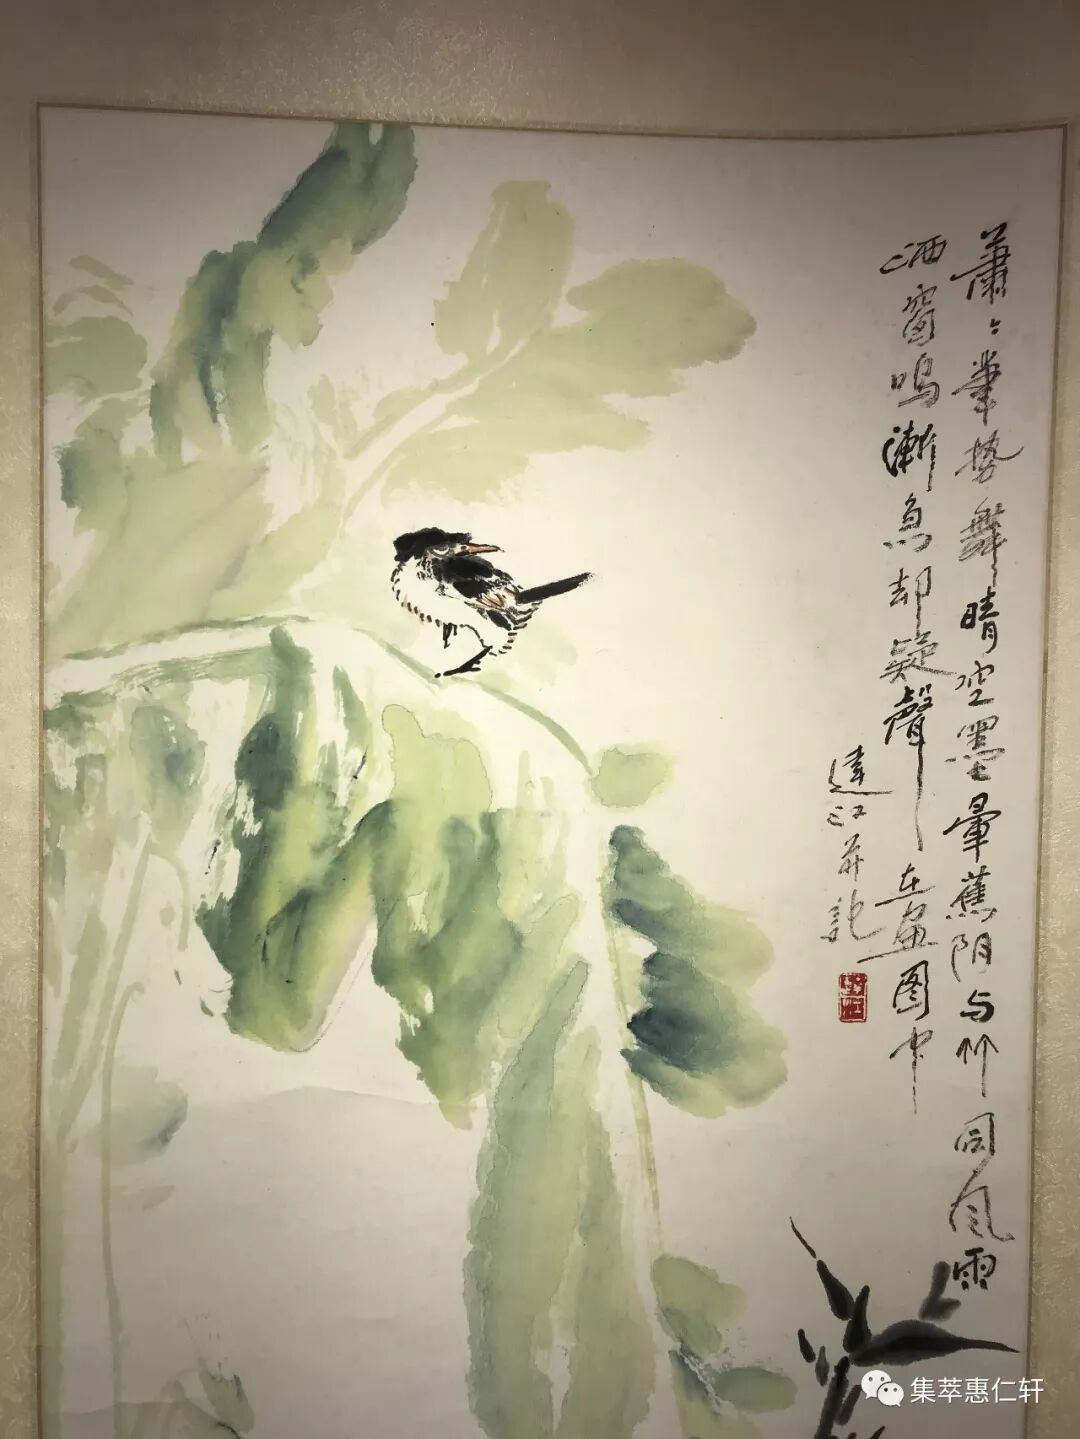 萧〻笔势舞晴空墨晕蕉阴与竹同风雨
洒窗鸣渐急却疑声在画图中
达江并记
集萃惠仁轩